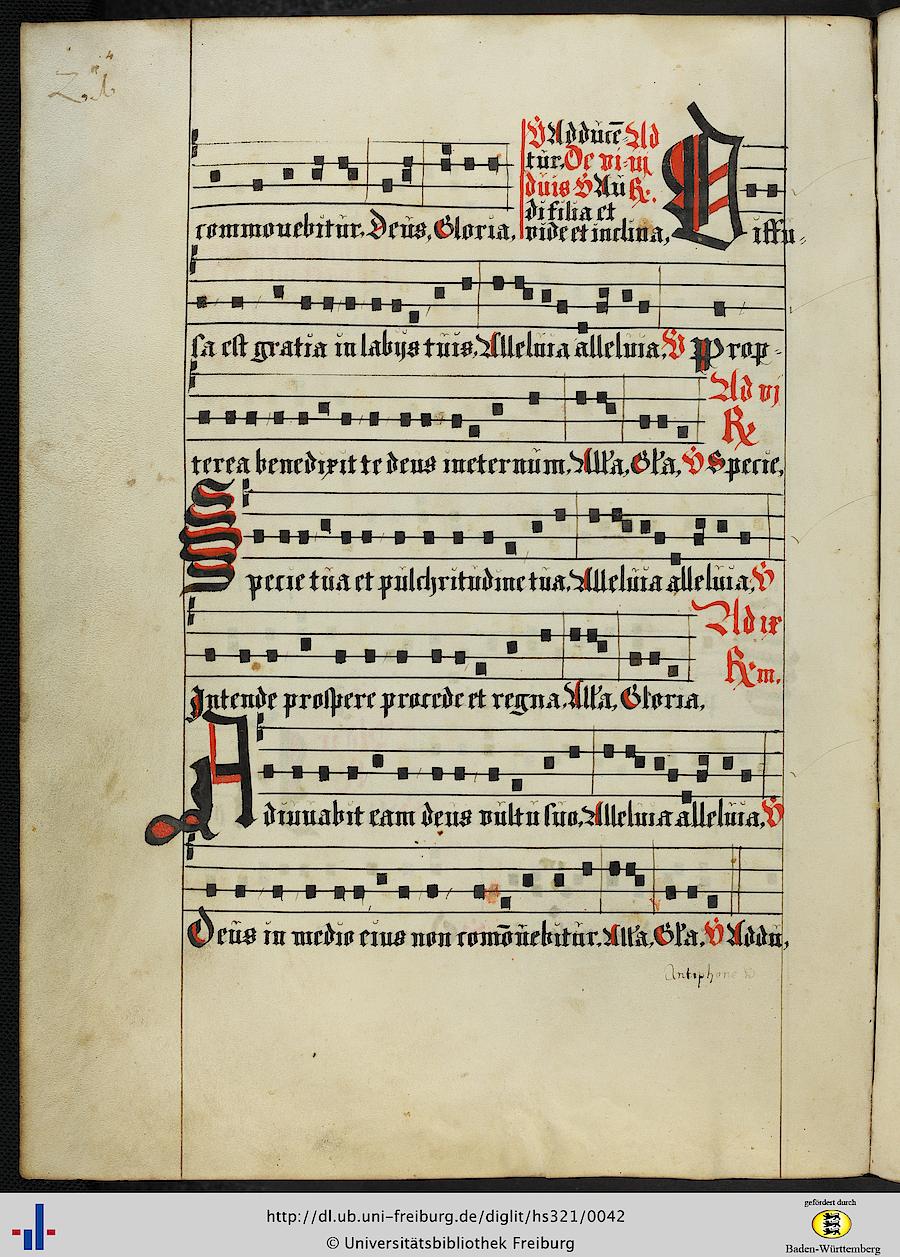 Ꝟ Adduce̅ Ad
tur. De vi-iii
duis Ꝟ Au ℟.
di filia et
commouebitur. Deus, Gloria, vide et inclina, Diffu-
sa est gratia in labijs tuis, Alleluia alleluia, Ꝟ Prop-
Ad vj
℟
terea benedixit te deus ineternum, All'a, Gl'a, Ꝟ Specie,
Specie tua et pulchritudine tua, Alleluia alleluia, Ꝟ
Ad ix
℟m.
Intende prospere procede et regna, All'a, Gloria,
Adiuuabit eam deus vultu suo, Alleluia alleluia, Ꝟ
Deus in medio eius non com̅ouebitur, All'a, Gl'a, Ꝟ Addu,
Antiphone
http://dl.ub.uni-freiburg.de/diglit/hs321/0042
© Universitätsbibliothek Freiburg
gefördert durch
Baden-Württemberg